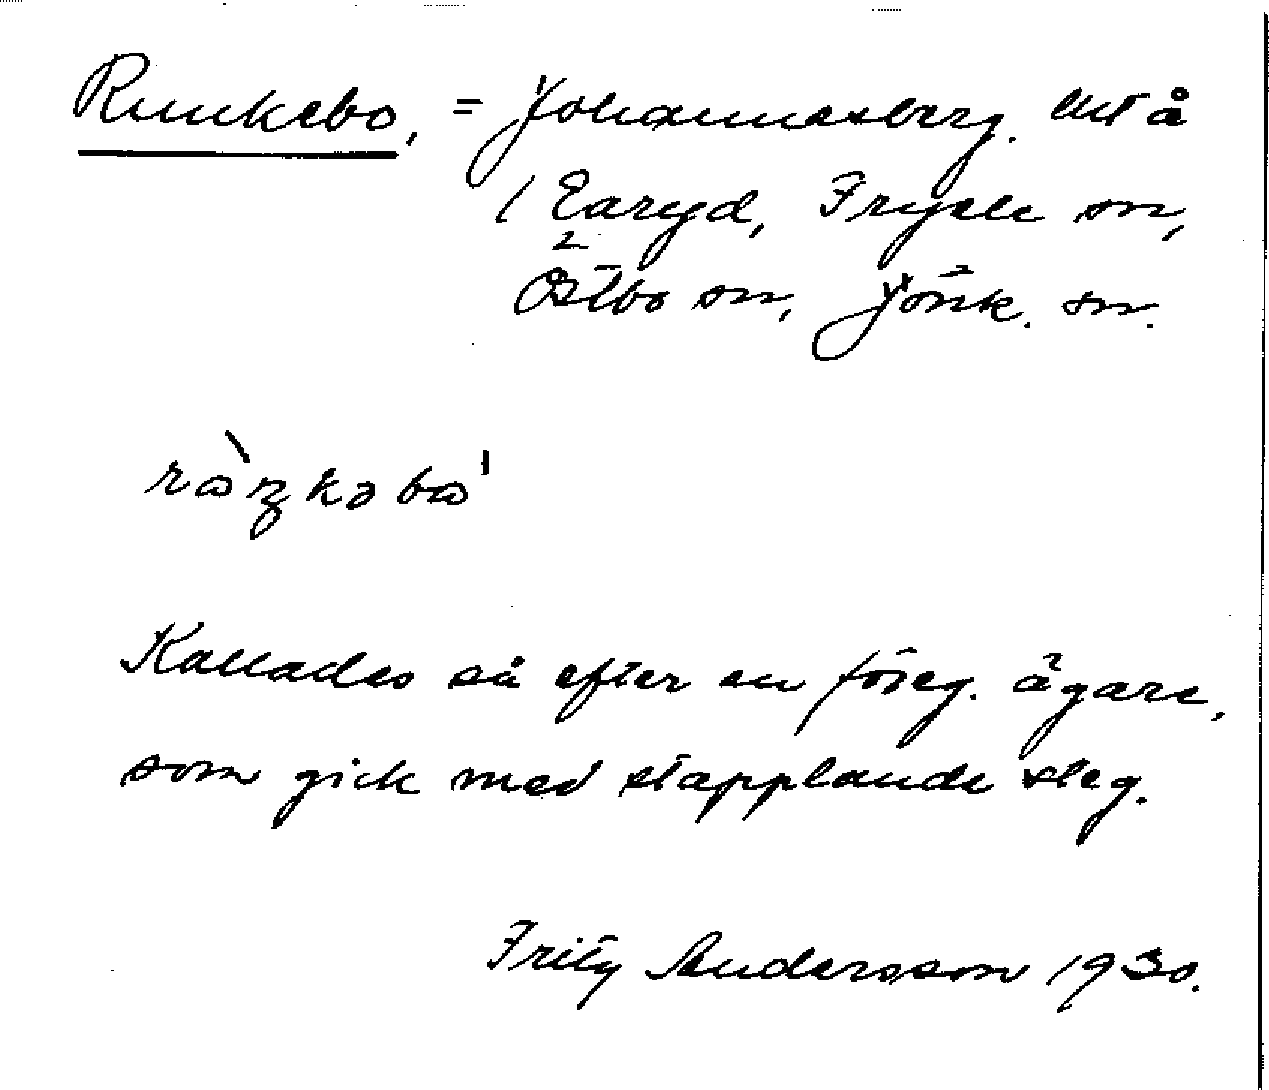 Runkebo, = Johannesberg. litt å
1 Earyd, Fryele sn,
Östbo sn, Jönk. sn.
Kallades så efter en föreg. ägare,
som gick med stapplande steg.
Fritz Andersson 1930.